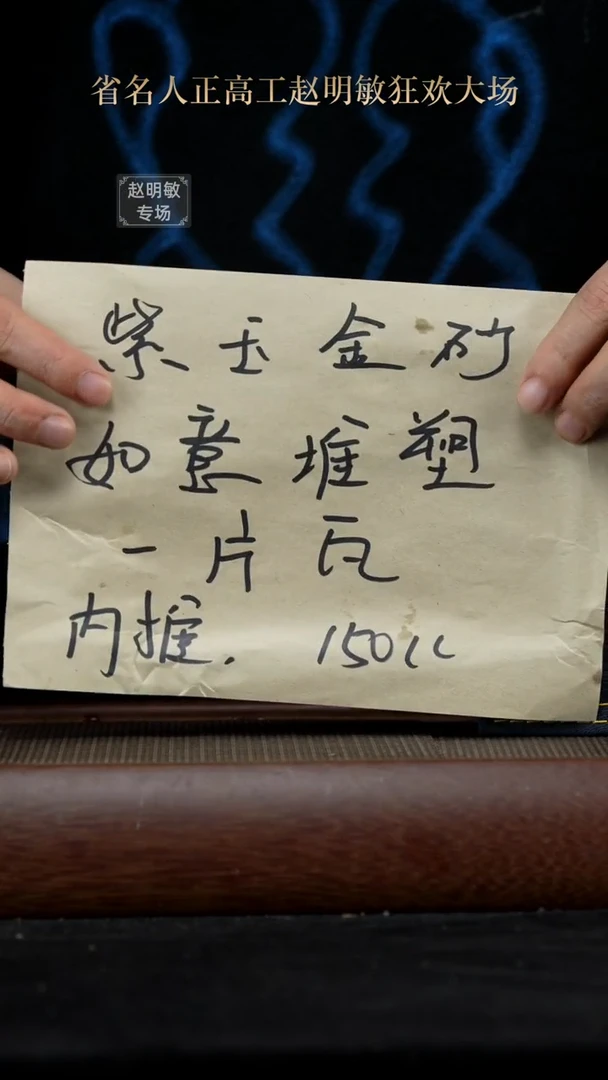 省名人正高工赵明敏狂欢大场
赵明敏
专场
紫玉金砂
如意堆塑
一片瓦
内推. 150cc